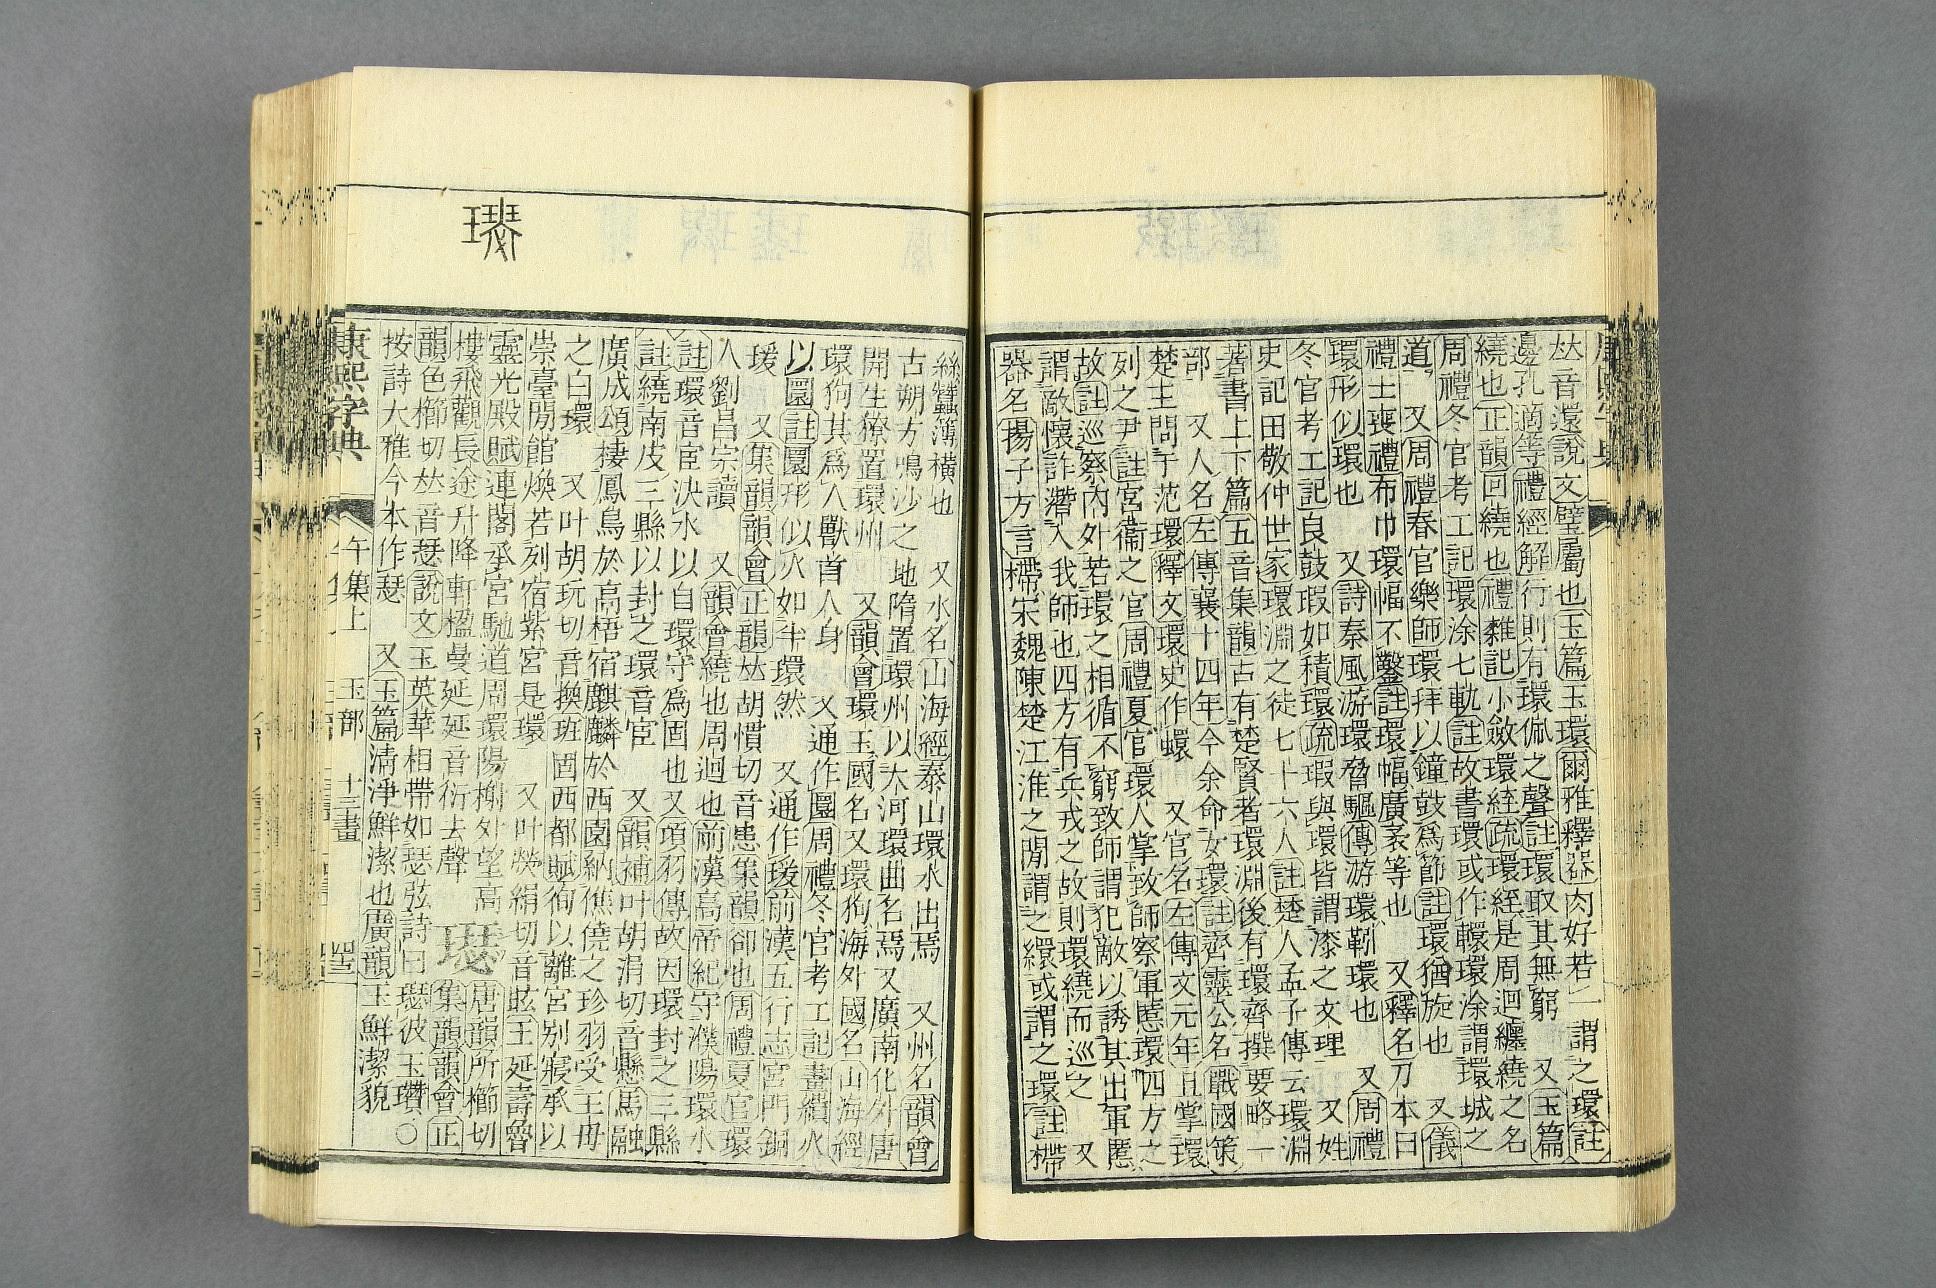 𠀤音還說文璧屬也玉篇玉環爾雅釋器肉好若一謂之環註
邊孔適等禮經解行則有環佩之聲註環取其無窮 又玉篇
繞也正韻回繞也禮雜記小斂環絰疏環絰是周迴纏繞之名
周禮冬官考工記環涂七軌註故書環或作轘環涂謂環城之
道 又周禮春官樂師環拜以鐘鼓爲節註環猶旋也 又儀
禮士喪禮布巾環幅不鑿註環幅廣袤等也 又釋名刀本曰
環形似環也 又詩秦風游環脅驅傳游環靷環也 又周禮
冬官考工記良鼓瑕如積環疏瑕與環皆謂漆之文理 又姓
史記田敬仲世家環淵之徒七十六人註楚人孟子傳云環淵
著書上下篇五音集韻古有楚賢者環淵後有環齊撰要略一
部 又人名左傳襄十四年今余命女環註齊靈公名戰國策
楚王問于范環釋文環史作蠉 又官名左傳文元年且掌環
列之尹註宮衞之官周禮夏官環人掌致師察軍慝環四方之
故註巡察內外若環之相循不窮致師謂犯敵以誘其出軍慝
謂敵懷詐潛入我師也四方有兵戎之故則環繞而巡之 又
器名揚子方言㯂宋魏陳楚江淮之閒謂之繯或謂之環註㯂
絲蠶簿橫也 又水名山海經泰山環水出焉 又州名韻會
古朔方鳴沙之地隋置環州以大河環曲名焉又廣南化外唐
開生獠置環州 又韻會環玉國名又環狗海外國名山海經
環狗其爲人獸首人身 又通作圜周禮冬官考工記畫繢火
以圜註圜形似火如半環然 又通作瑗前漢五行志宮門銅
瑗 又集韻韻會正韻𠀤胡慣切音患集韻卻也周禮夏官環
人劉昌宗讀 又韻會繞也周迴也前漢高帝紀守濮陽環水
註環音宦決水以自環守爲固也又項羽傳故因環封之三縣
註繞南皮三縣以封之環音宦 又韻補叶胡涓切音懸馬融
廣成頌棲鳳鳥於高梧宿麒麟於西園納僬僥之珍羽受王母
之白環 又叶胡玩切音換班固西都賦徇以離宮別寢承以
崇臺閒館煥若列宿紫宮是環 又叶熒絹切音眩王延壽魯
靈光殿賦連閣承宮馳道周環陽榭外望高
樓飛觀長途升降軒檻曼延延音衍去聲 璱 唐韻所櫛切
集韻韻會正
韻色櫛切𠀤音瑟說文玉英華相帶如瑟弦詩曰璱彼玉瓚○
按詩大雅今本作瑟 又玉篇淸淨鮮潔也廣韻玉鮮潔貌
康熙字典 午集上 玉部 十三畫